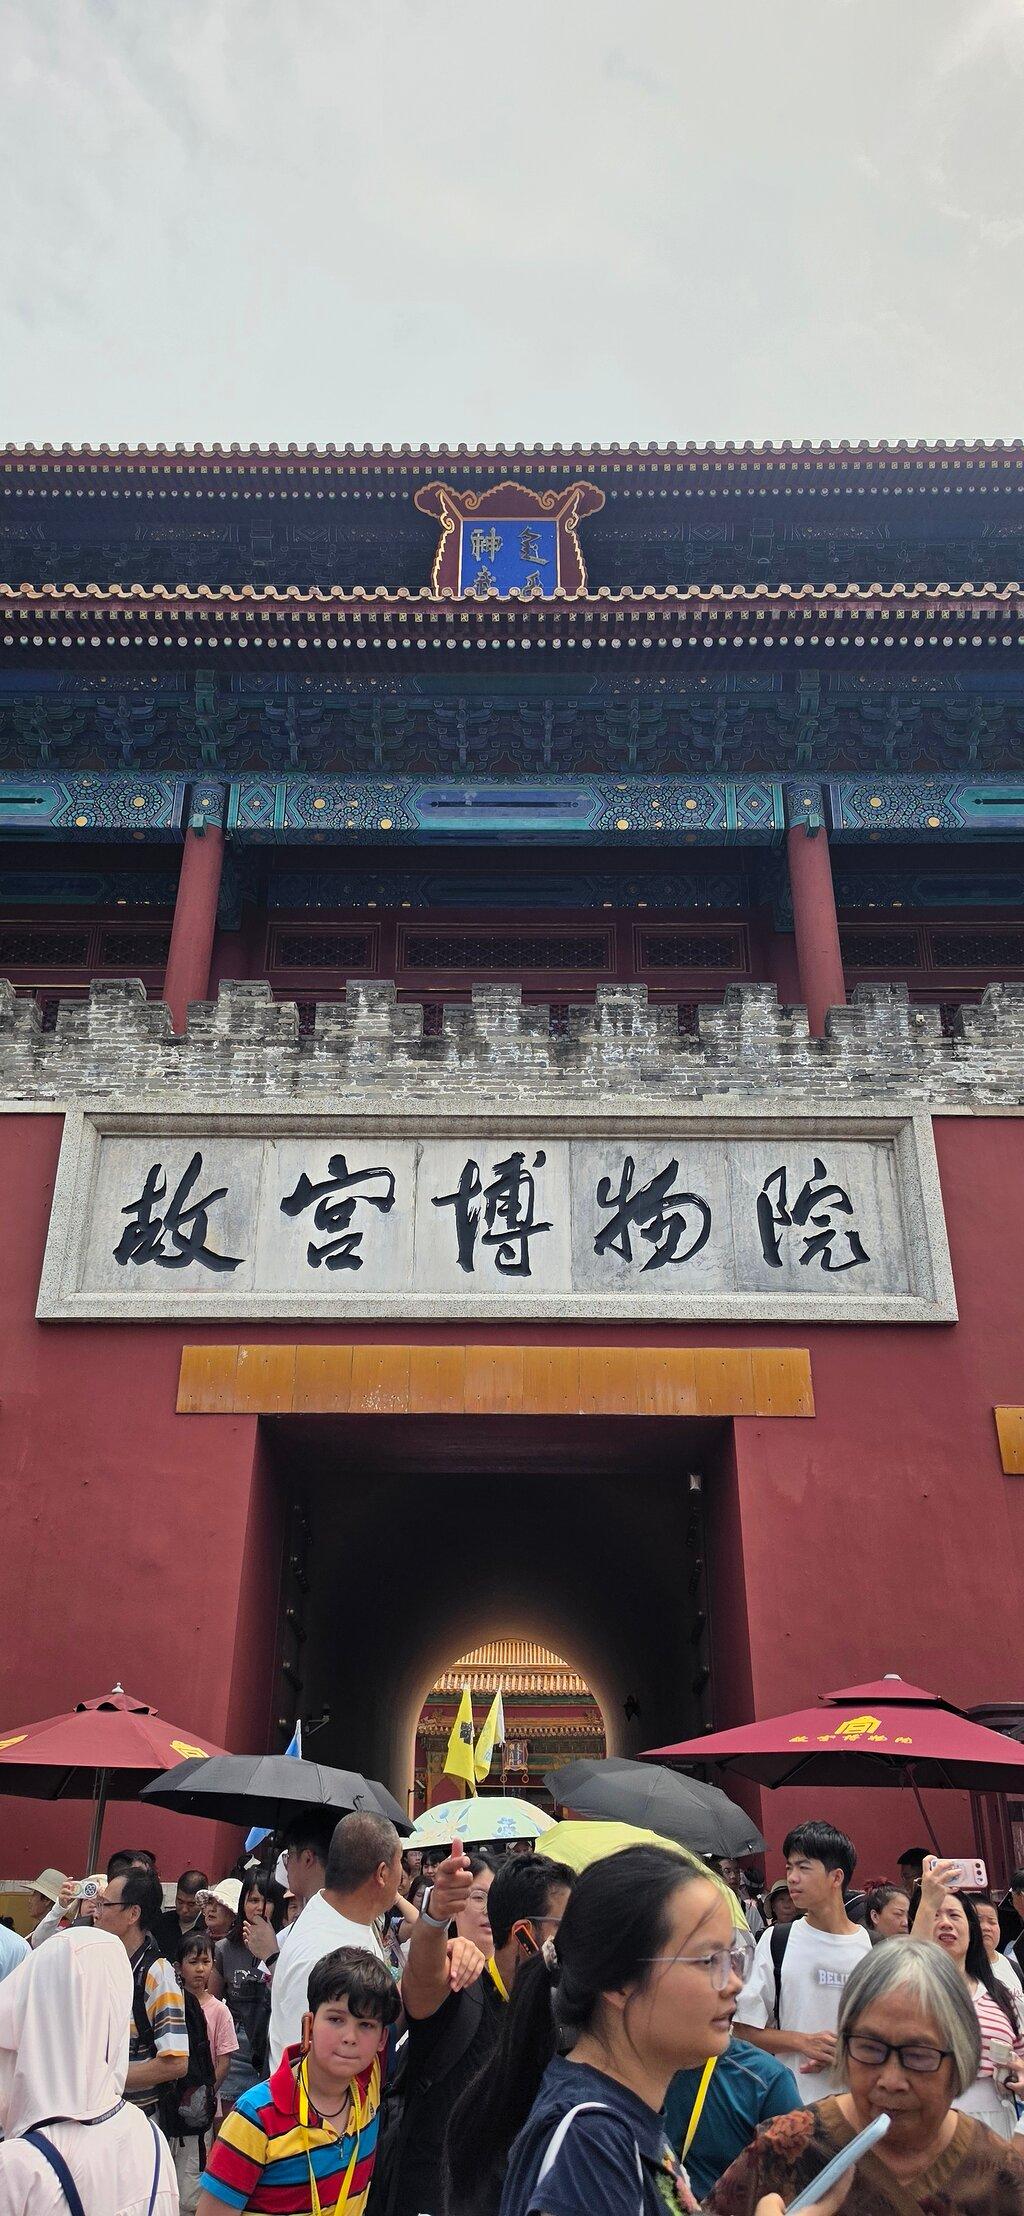 神武
故宫博物院
故宫博物院